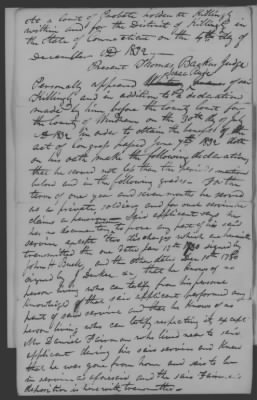 At a Court of Probate holden at Killingly
within and for the District of Killingly in
the State of Connecticut on the 4th day of
December AD 1832
Present Thomas Backus Judge
Isaac Page
Personally appeared of said
Killingly and in addition to the declaration
made by him before the County Court for
the County of Windham on the 30th of July
AD 1832 in order to obtain the benefit of the
act of Congress passed June 7th 1832 doth
on his oath make the following declaration,
that he served not less than the periods mentioned
below and in the following grades. For the
term of one year and seven months he served
as a private soldier and for such service he
claims a pension. Said applicant says he
has no documentary to prove any part of his said
service except two discharges which are herewith
transmitted the one dated Jan 15th 1780 signed by
John H. Buell and the other dated Dec 10th 1780
signed by J Durkee &c, that he knows of no
person living who can testify from his personal
knowledge that said applicant performed any
part of said service and that he knows of no
person living who can testify respecting it except
Mr Daniel who lived near to said
applicant during his said service and knew
that he was gone from home and said to be
in service as aforesaid and the said
deposition is herewith transmitted